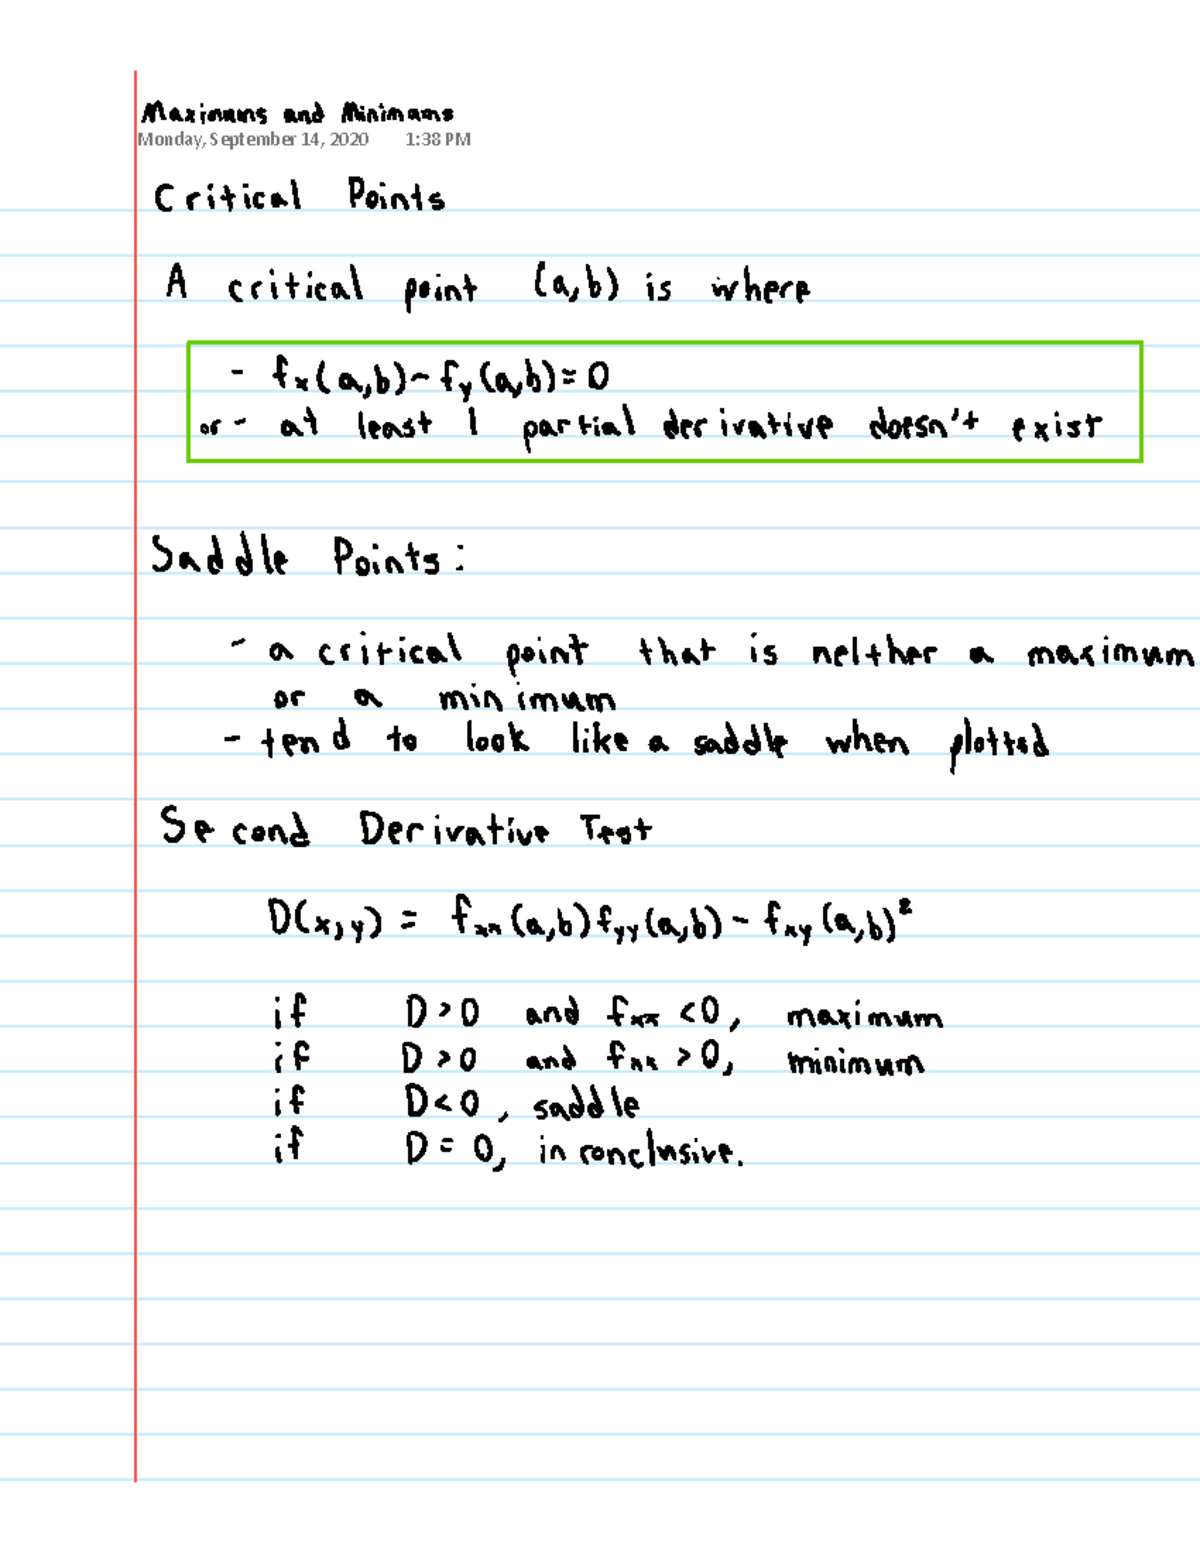 Maximums and Minimums
Monday, September 14, 2020 1:38 PM
Critical Points
A critical point (a,b) is where
- fx(a,b)-fy(a,b)=0
or - at least 1 partial derivative doesn't exist
Saddle Points:
- a critical point that is neither a maximum
or a minimum
- tend to look like a saddle when plotted
Second Derivative Test
D(x,y) = fxx(a,b)fyy(a,b) - fxy(a,b)²
if D>0 and fxx <0, maximum
if D>0 and fxx >0, minimum
if D<0, saddle
if D=0, inconclusive.